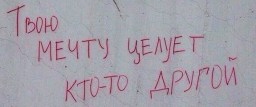 Твою
мечту целует
кто-то другой